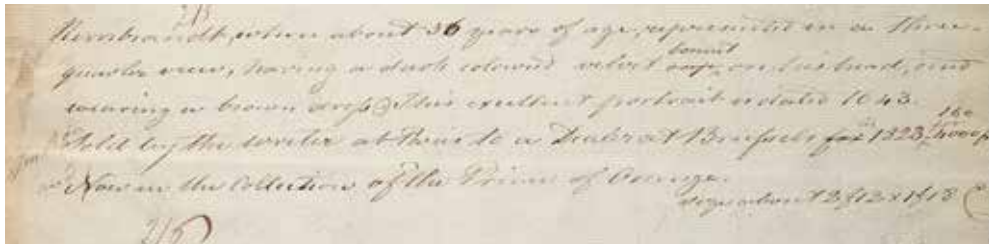 218
Rembrandt, when about 36 years of age, represented in a three-
quarter view, having a dark coloured velvet bonnet on his head, and
wearing a brown dress. This excellent portrait is dated 1643.
Sold by the writer at Paris to a Dealer at Brussels 1823, 160 4000 f
Now in the Collection of the Prince of Orange.
size about 2 f 12 x 1 f 18